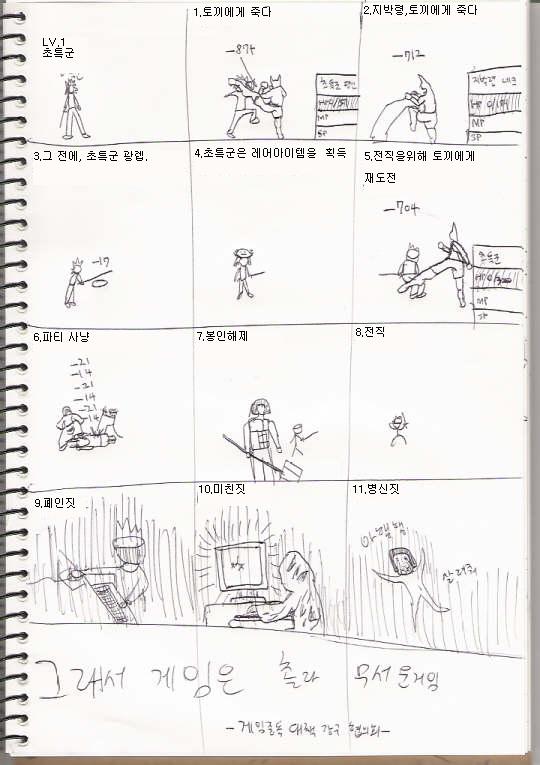 LV.1
초특군
1.토끼에게 죽다
-874
HP
MP
SP
2.지박령,토끼에게 죽다
-712
지박령
HP
MP
SP
3.그 전에, 초특군 광렙.
-17
4.초특군은 레어아이템을 획득
5.전직을위해 토끼에게
재도전
-704
초특군
MP
SP
6.파티 사냥
-21
-14
-21
-14
-21
-14
7.봉인해제
8.전직
9.폐인짓
10.미친짓
11.병신짓
살려줘
그래서 게임은 졸라 무서운게임
-게임중독 대책 강구 협의회-